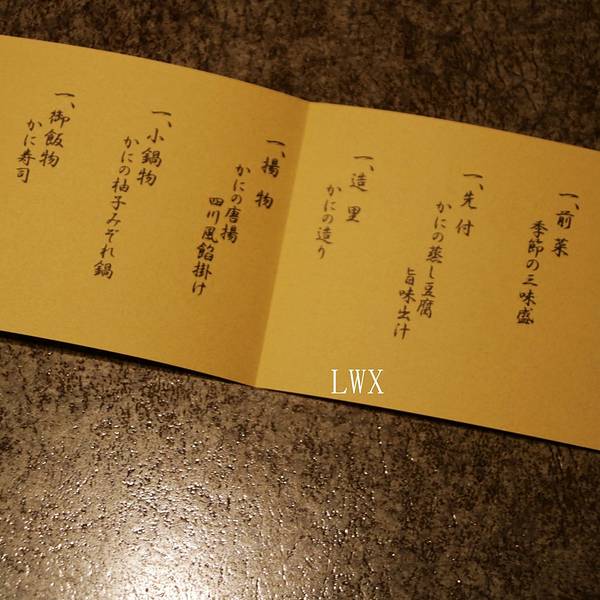 一、前菜
季節の三味盛
一、先付
かにの蒸し豆腐
旨味出汁
一、造里
かにの造り
一、揚物
かにの唐揚
四川風餡掛け
一、小鍋物
かにの柚子みぞれ鍋
一、御飯物
かに寿司
LWX